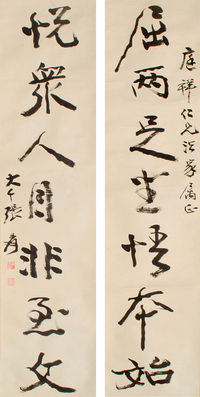 庭祥仁兄法家屬正
屈兩足坐悟本始
悅眾人目非至文
大千張爰